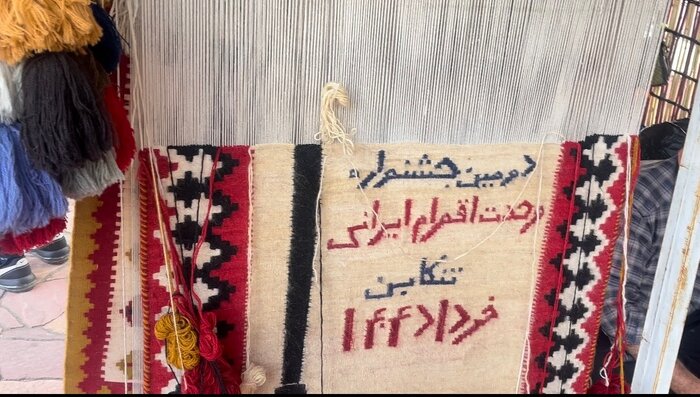 دومین جشنواره
وحدت اقوام ایرانی
تنکابن
خرداد ۱۴۰۴